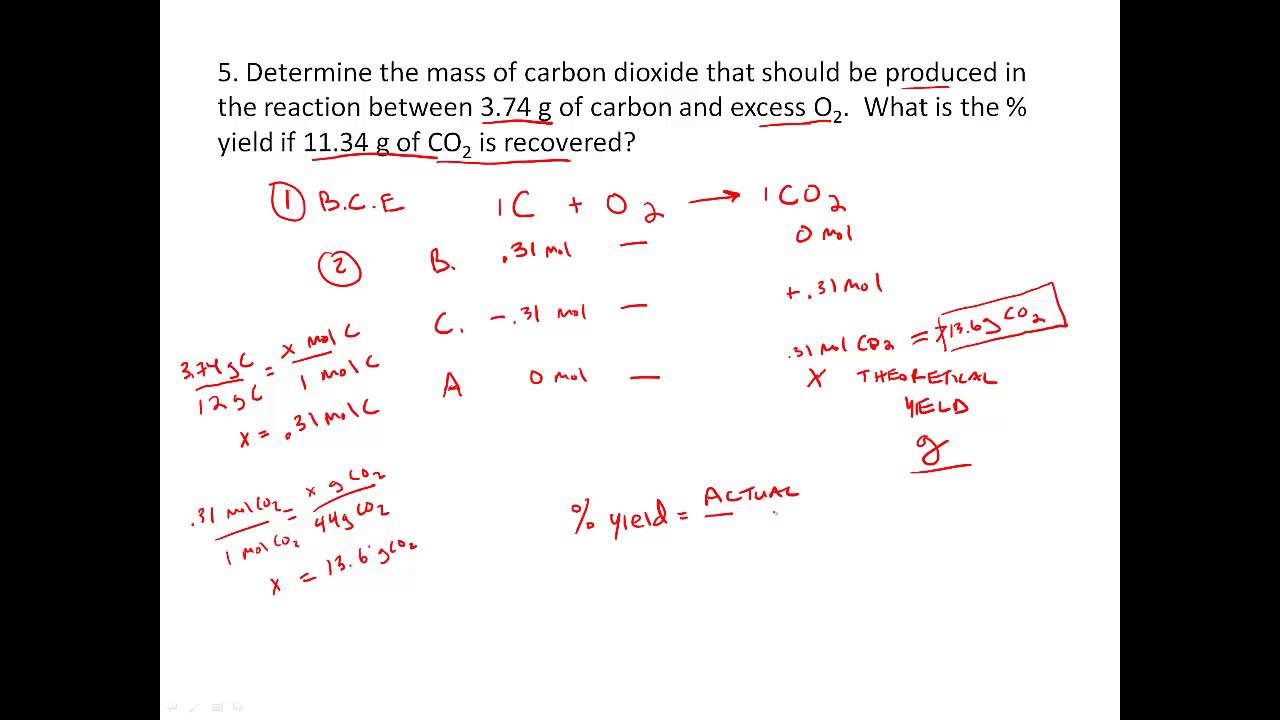 5. Determine the mass of carbon dioxide that should be produced in
the reaction between 3.74 g of carbon and excess O₂. What is the %
yield if 11.34 g of CO₂ is recovered?
① B.C.E 1C + O₂ → 1CO₂
② B. .31 mol — 0 mol
C. -.31 mol — +.31 mol
A 0 mol — .31 mol CO₂ = 13.6g CO₂
X THEORETICAL
YIELD
g
3.74gC = x mol C
12gC 1 mol C
x = .31 mol C
.31 mol CO₂ = x g CO₂
1 mol CO₂ 44g CO₂
x = 13.6 g CO₂
% yield = ACTUAL